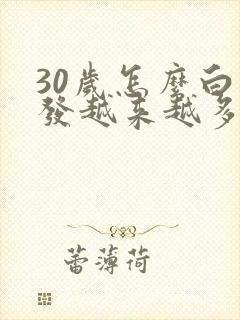 30歲怎麼白
發越來越多
蕾薄荷